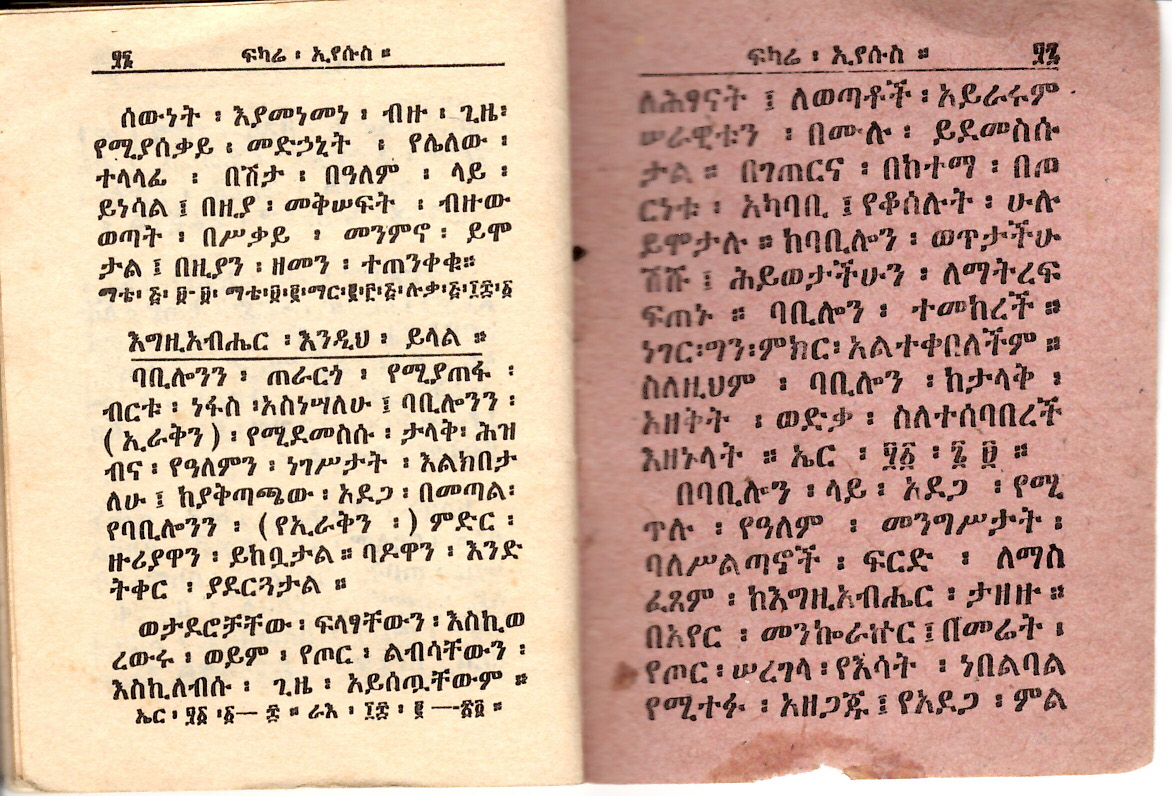 ፶፮ ፍካሬ ፡ ኢየሱስ ።
ሰውነት ፡ እያመነመነ ፡ ብዙ ፡ ጊዜ፡
የሚያሰቃይ ፡ መድኃኒት ፡ የሌለው ፡
ተላላፊ ፡ በሽታ ፡ በዓለም ፡ ላይ ፡
ይነሳል ፤ በዚያ ፡ መቅሠፍት ፡ ብዙው
ወጣት ፡ በሥቃይ ፡ መንምኖ ፡ ይሞ
ታል ፤ በዚያን ፡ ዘመን ፡ ተጠንቀቁ።
እግዚአብሔር ፡ እንዲህ ፡ ይላል ።
ባቢሎንን ፡ ጠራርጎ ፡ የሚያጠፋ ፡
ብርቱ ፡ ነፋስ ፡አስነሣለሁ ፤ ባቢሎንን ፡
(ኢራቅን) ፡ የሚደመስሱ ፡ ታላቅ፡ ሕዝ
ብና ፡ የዓለምን ፡ ነገሥታት ፡ እልክበታ
ለሁ ፤ ከያቅጣጫው ፡ አደጋ ፡ በመጣል፡
የባቢሎንን ፡ (የኢራቅን ፡) ምድር ፡
ዙሪያዋን ፡ ይከቧታል ። ባዶዋን ፡ እንድ
ትቀር ፡ ያደርጓታል ።
ወታደሮቻቸው ፡ ፍላፃቸውን ፡ እስኪወ
ረውሩ ፡ ወይም ፡ የጦር ፡ ልብሳቸውን ፡
እስኪለብሱ ፡ ጊዜ ፡ አይሰጧቸውም ።
ፍካሬ ፡ ኢየሱስ ። ፶፯
ለሕፃናት ፤ ለወጣቶች ፡ አይራሩም
ሠራዊቱን ፡ በሙሉ ፡ ይደመስሱ
ታል ። በገጠርና ፡ በከተማ ፡ በጦ
ርነቱ ፡ አካባቢ ፤ የቆሰሉት ፡ ሁሉ
ይሞታሉ ። ከባቢሎን ፡ ወጥታችሁ
ሽሹ ፤ ሕይወታችሁን ፡ ለማትረፍ
ፍጠኑ ። ባቢሎን ፡ ተመከረች ።
ነገር፡ግን፡ምክር፡አልተቀበለችም ።
ስለዚህም ፡ ባቢሎን ፡ ከታላቅ ፡
አዘቅት ፡ ወድቃ ፡ ስለተሰባበረች
እዘኑላት ። ኤር ፡ ፶፩ ፡ ፮ ፱ ።
በባቢሎን ፡ ላይ ፡ አደጋ ፡ የሚ
ጥሉ ፡ የዓለም ፡ መንግሥታት ፡
ባለሥልጣኖች ፡ ፍርድ ፡ ለማስ
ፈጸም ፡ ከእግዚአብሔር ፡ ታዘዙ ።
በአየር ፡ መንኩራኩር ፤ በመሬት ፡
የጦር ፡ ሠረገላ ፡ የእሳት ፡ ነበልባል
የሚተፉ ፡ አዘጋጁ ፤ የአደጋ ፡ ምል